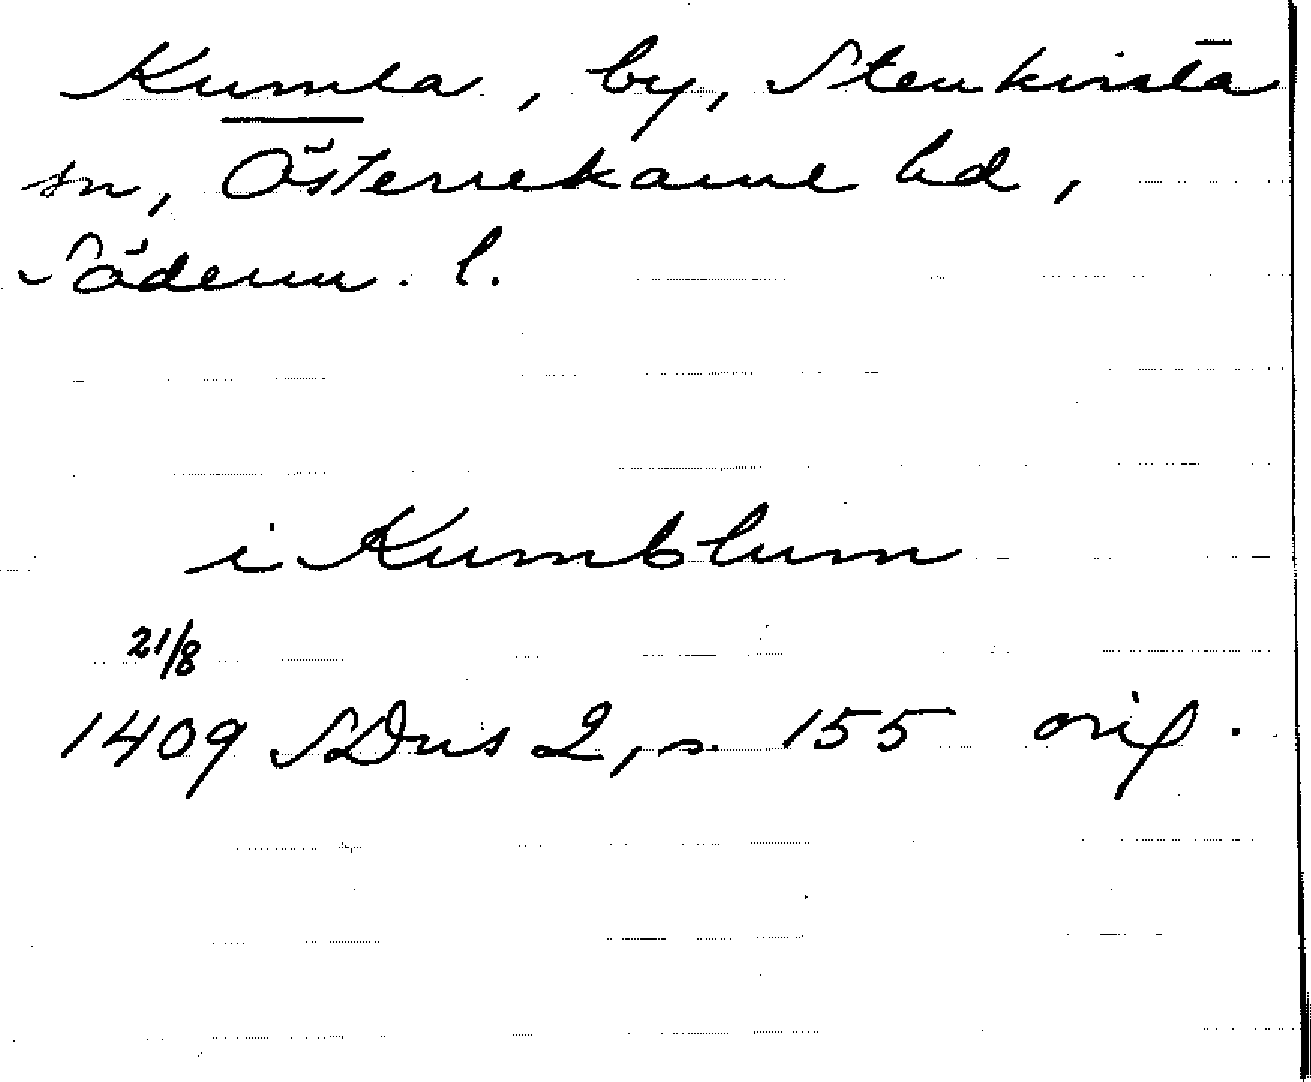 Kumla, by, Stenkvista
sn, Österrekarne hd,
Söderm. l.
i Kumblum
21/8
1409 SDns 2, s. 155 orig.